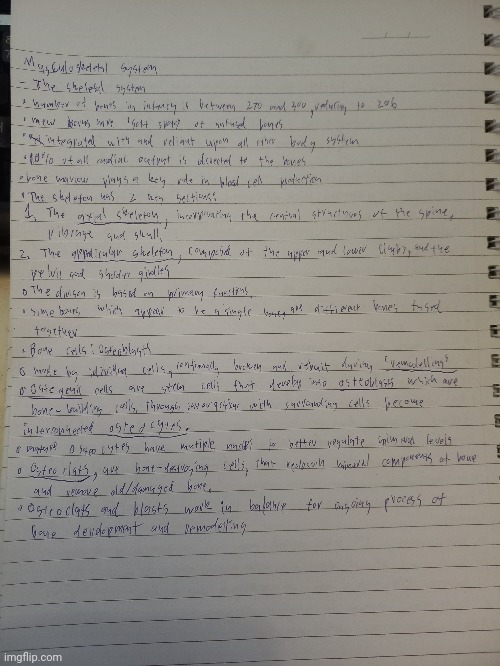 Musculoskeletal system
- The skeletal system
• number of bones in infancy is between 270 and 300, reducing to 206
• new bones have soft spots of unfused bones
• integrated with and reliant upon all other body system
• 10% of all cardiac output is directed to the bones
• bone marrow plays a key role in blood cell production
• The skeleton has 2 key sections:
1. The axial skeleton, incorporating the central structures of the spine,
ribcage and skull.
2. The appendicular skeleton, composed of the upper and lower limbs, and the
pelvic and shoulder girdles
• The division is based on primary function.
• some bones which appear to be a single bone, are different bones fused
together
• Bone cells: osteoblasts
• made by individual cells, continually broken and rebuilt during "remodelling"
• Osteogenic cells are stem cells that develop into osteoblasts which are
bone-building cells, through interaction with surrounding cells become
interconnected osteocytes.
• mature osteocytes have multiple to better regulate levels
• Osteoclasts, are bone-destroying cells, that components of bone
and remove old/damaged bone.
• Osteoclasts and blasts work in balance for ongoing process of
bone development and remodelling
imgflip.com